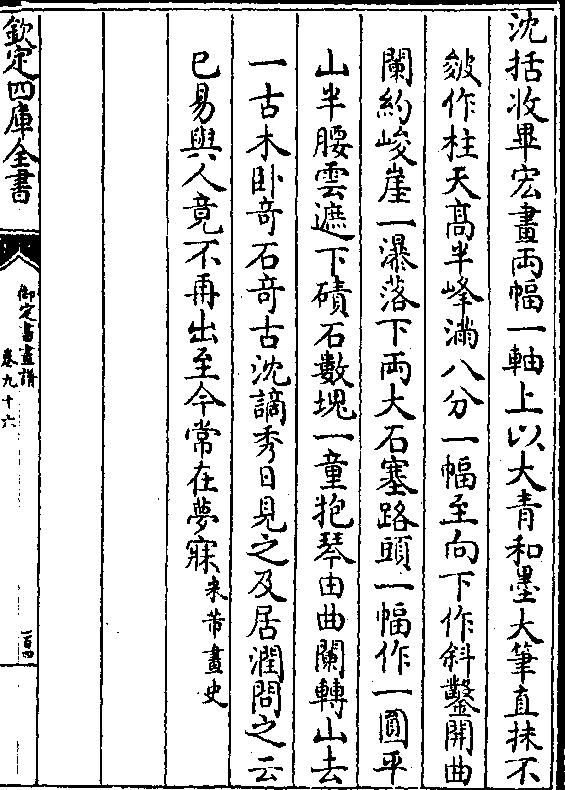 沈括收畢宏畫兩幅一軸上以大青和墨大筆直抹不
皴作柱天髙半峰滿八分一幅至向下作斜鑿開曲
闌約峻崖一瀑落下兩大石塞路頭一幅作一圓平
山半腰雲遮下磧石數塊一童抱琴由曲闌轉山去
一古木卧竒石竒古沈謫秀日見之及居潤問之云
已易與人竟不再出至今常在夢寐米芾畫史
欽定四庫全書
御定書畫譜
卷九十六
一百四